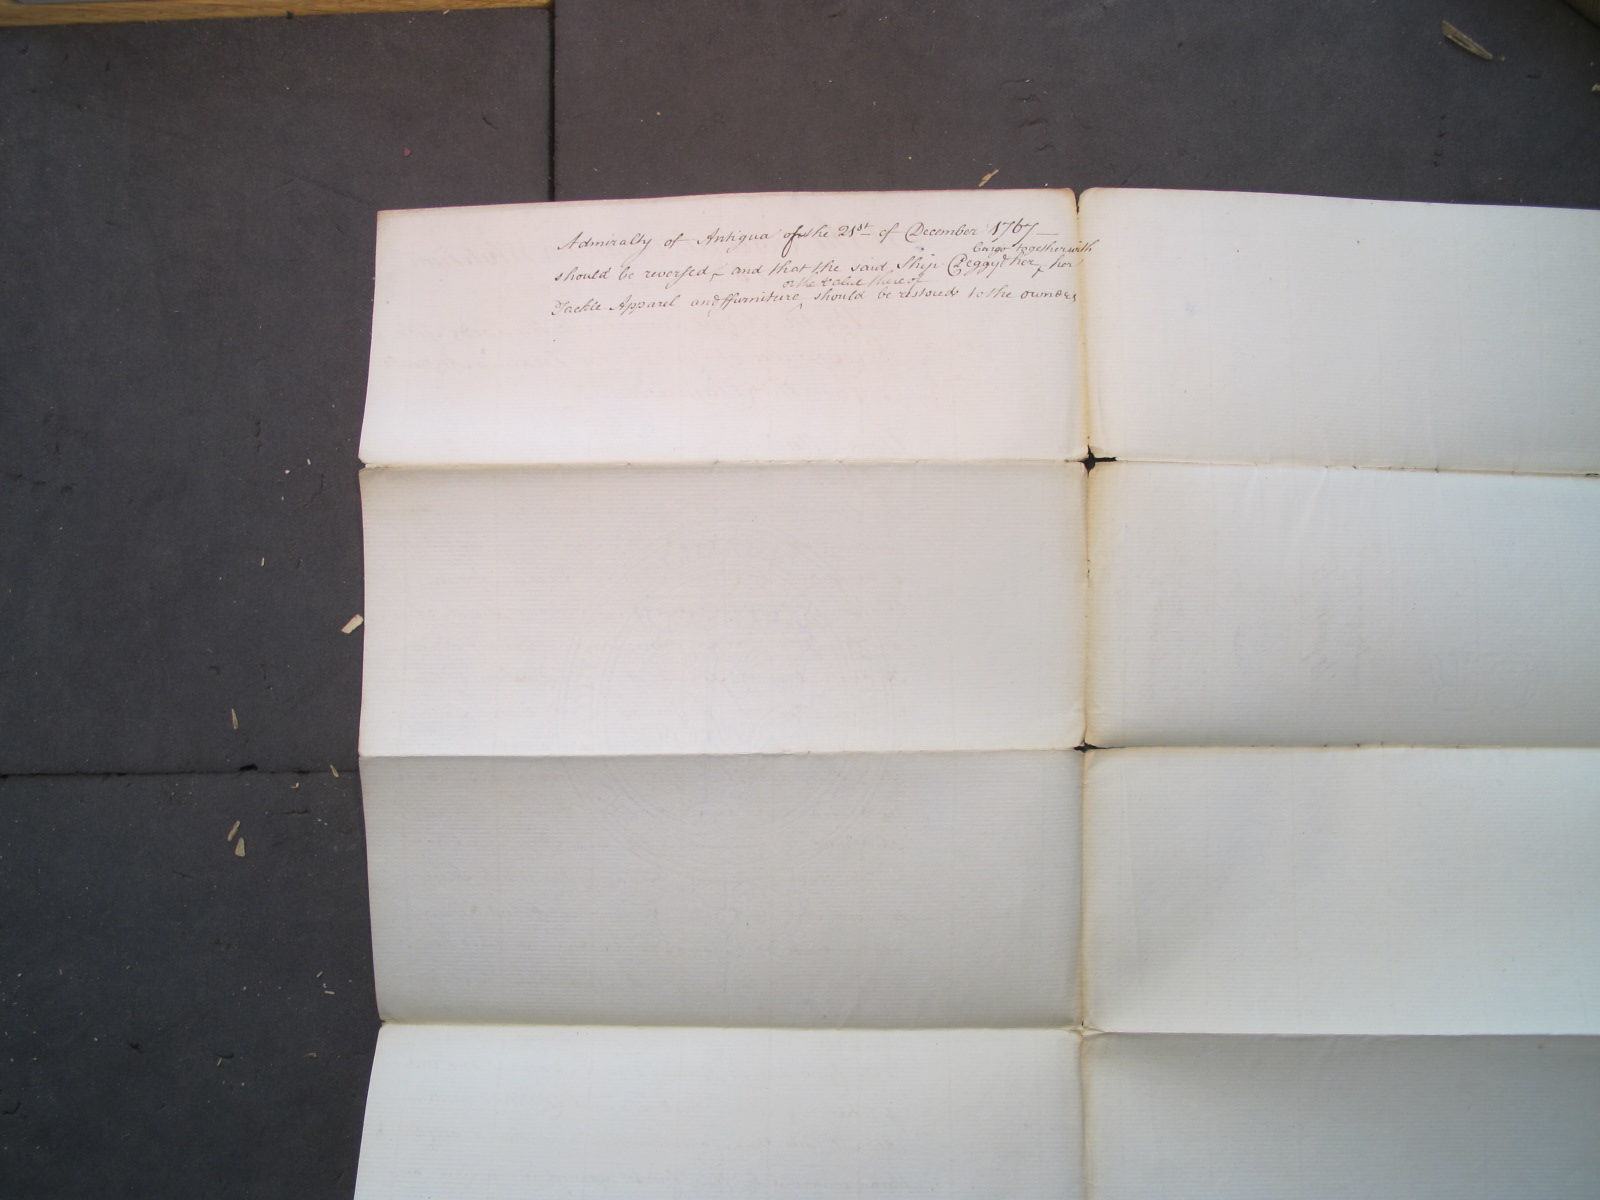 Admiralty of Antigua of the 21st of December 1767
Cargo together with
should be reversed, and that the said Ship Peggy & her her
or the value thereof
Tackle Apparel and ffurniture should be restored to the owners